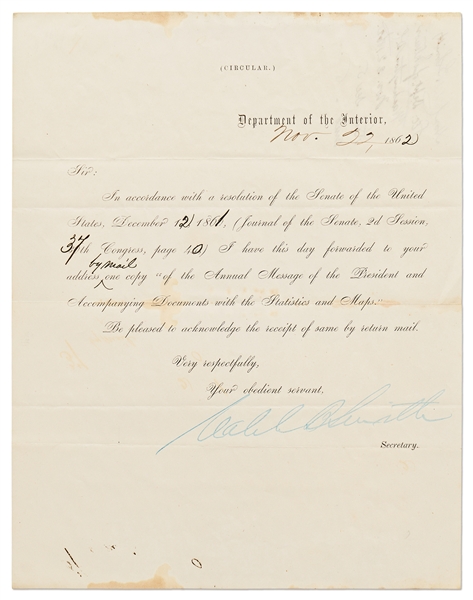 (CIRCULAR.)
Department of the Interior,
Nov. 22, 1862
Sir:
In accordance with a resolution of the Senate of the United
States, December 12, 1861, (Journal of the Senate, 2d Session,
37th Congress, page 40) I have this day forwarded to your
by mail
address ^ one copy "of the Annual Message of the President and
Accompanying Documents with the Statistics and Maps."
Be pleased to acknowledge the receipt of same by return mail.
Very respectfully,
Your obedient servant,
Caleb B Smith
Secretary.